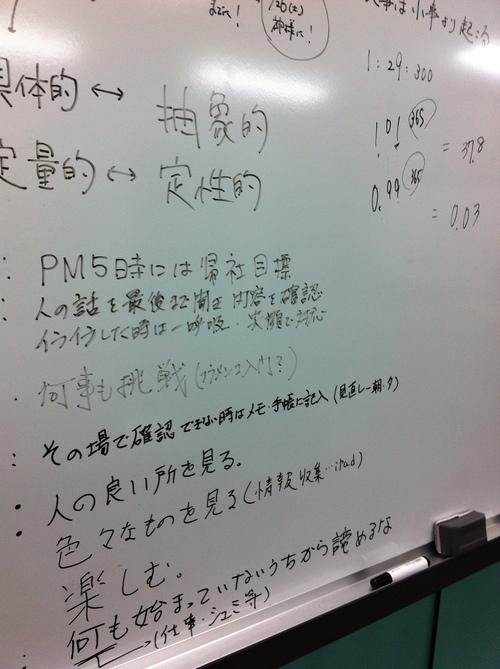 までに!
神様に!
大事は小事より起こる
1:29:300
具体的 ↔ 抽象的
1.01 365 = 37.8
定量的 ↔ 定性的
0.99 365 = 0.03
PM5時には帰社目標
人の話を最後まで聞き 内容を確認
イライラした時は一呼吸・笑顔で対応
何事も挑戦(フラメンコ入門?)
その場で確認 できない時はメモ・手帳に記入(見直し→朝・夕)
人の良い所を見る。
色々なものを見る(情報収集…ipad)
楽しむ。
何も始まっていないうちから諦めるな
(仕事・シュミ等)